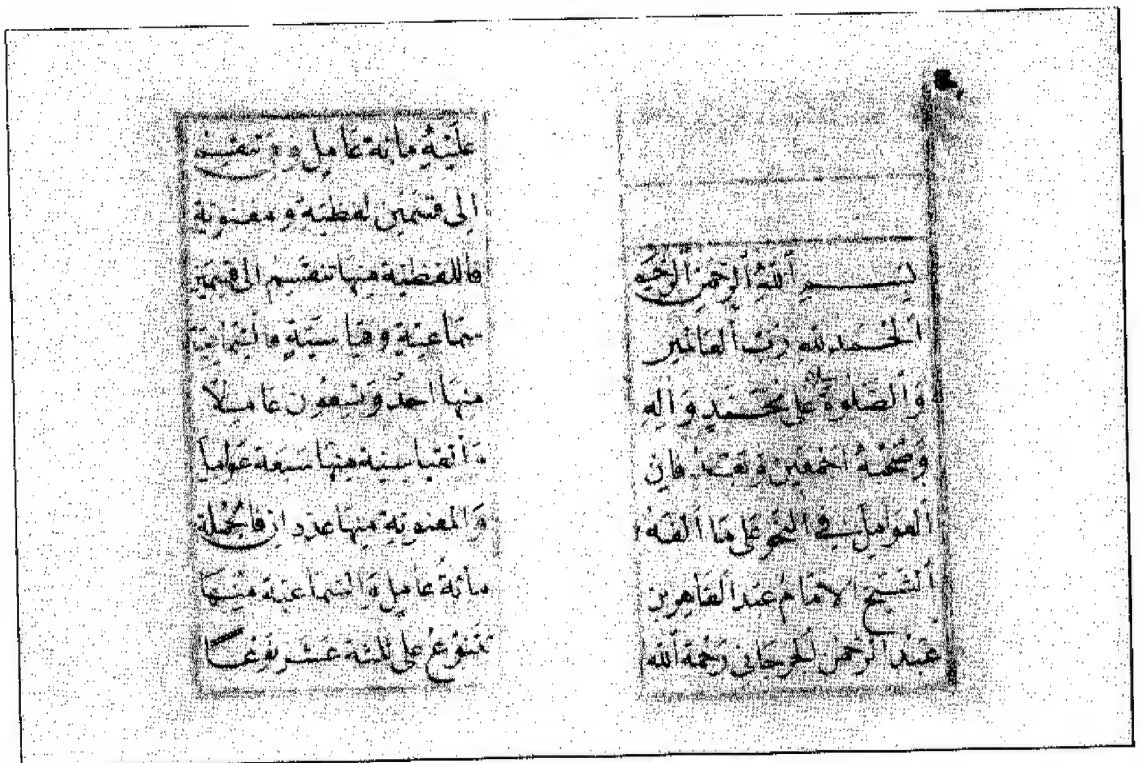 بسم الله الرحمن الرحيم
الحمد لله رب العالمين
والصلوة على محمد وآله
وصحبه اجمعين وبعد فان
العوامل في النحو على ما الفه
الشيخ الامام عبد القاهر بن
عبد الرحمن الجرجاني رحمة الله
عليه مائة عامل وهي تنقسم
الى قسمين لفظية ومعنوية
فاللفظية منها تنقسم الى قسمين
سماعية وقياسية فالسماعية
منها احد وتسعون عاملا
والقياسية منها سبعة عوامل
والمعنوية منها عددان فالجملة
مائة عامل والسماعية منها
تتنوع على ثلثة عشر نوعا